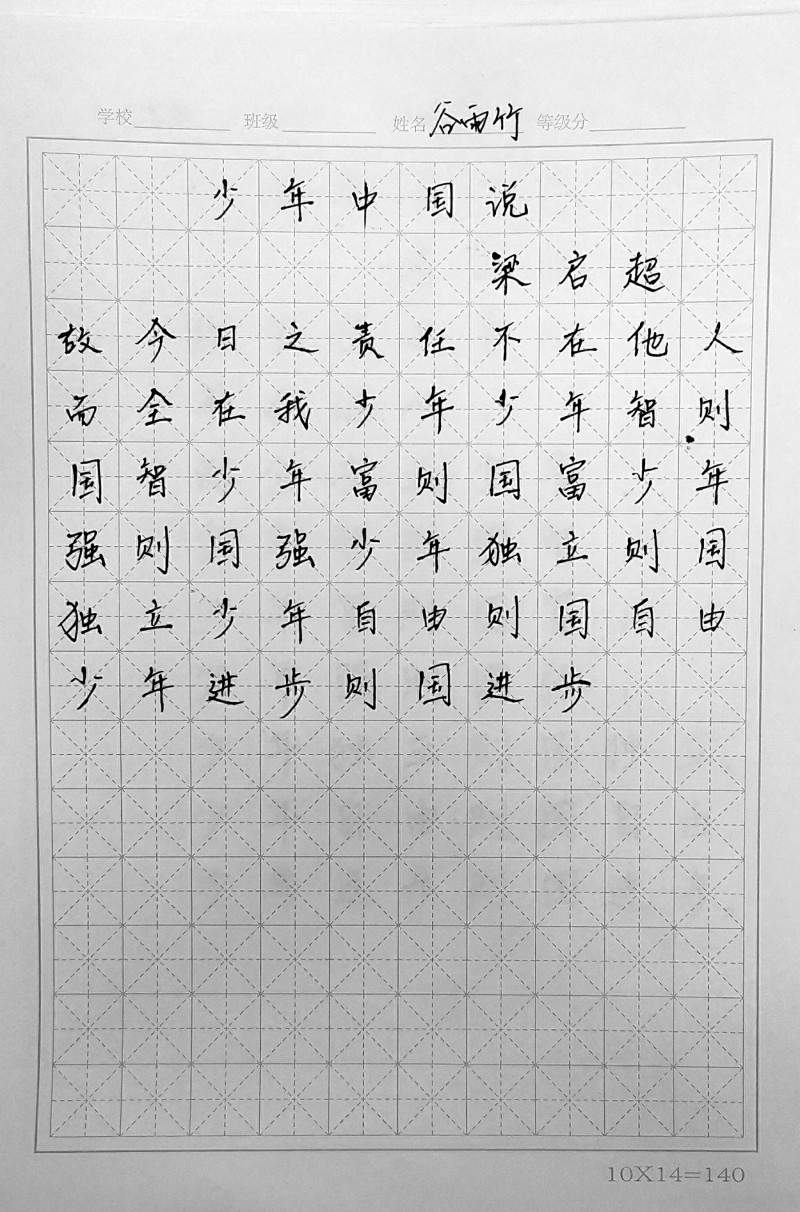 学校 班级 姓名 谷雨竹 等级分
少年中国说
梁启超
故今日之责任不在他人
而全在我少年少年智则
国智少年富则国富少年
强则国强少年独立则国
独立少年自由则国自由
少年进步则国进步
10X14=140